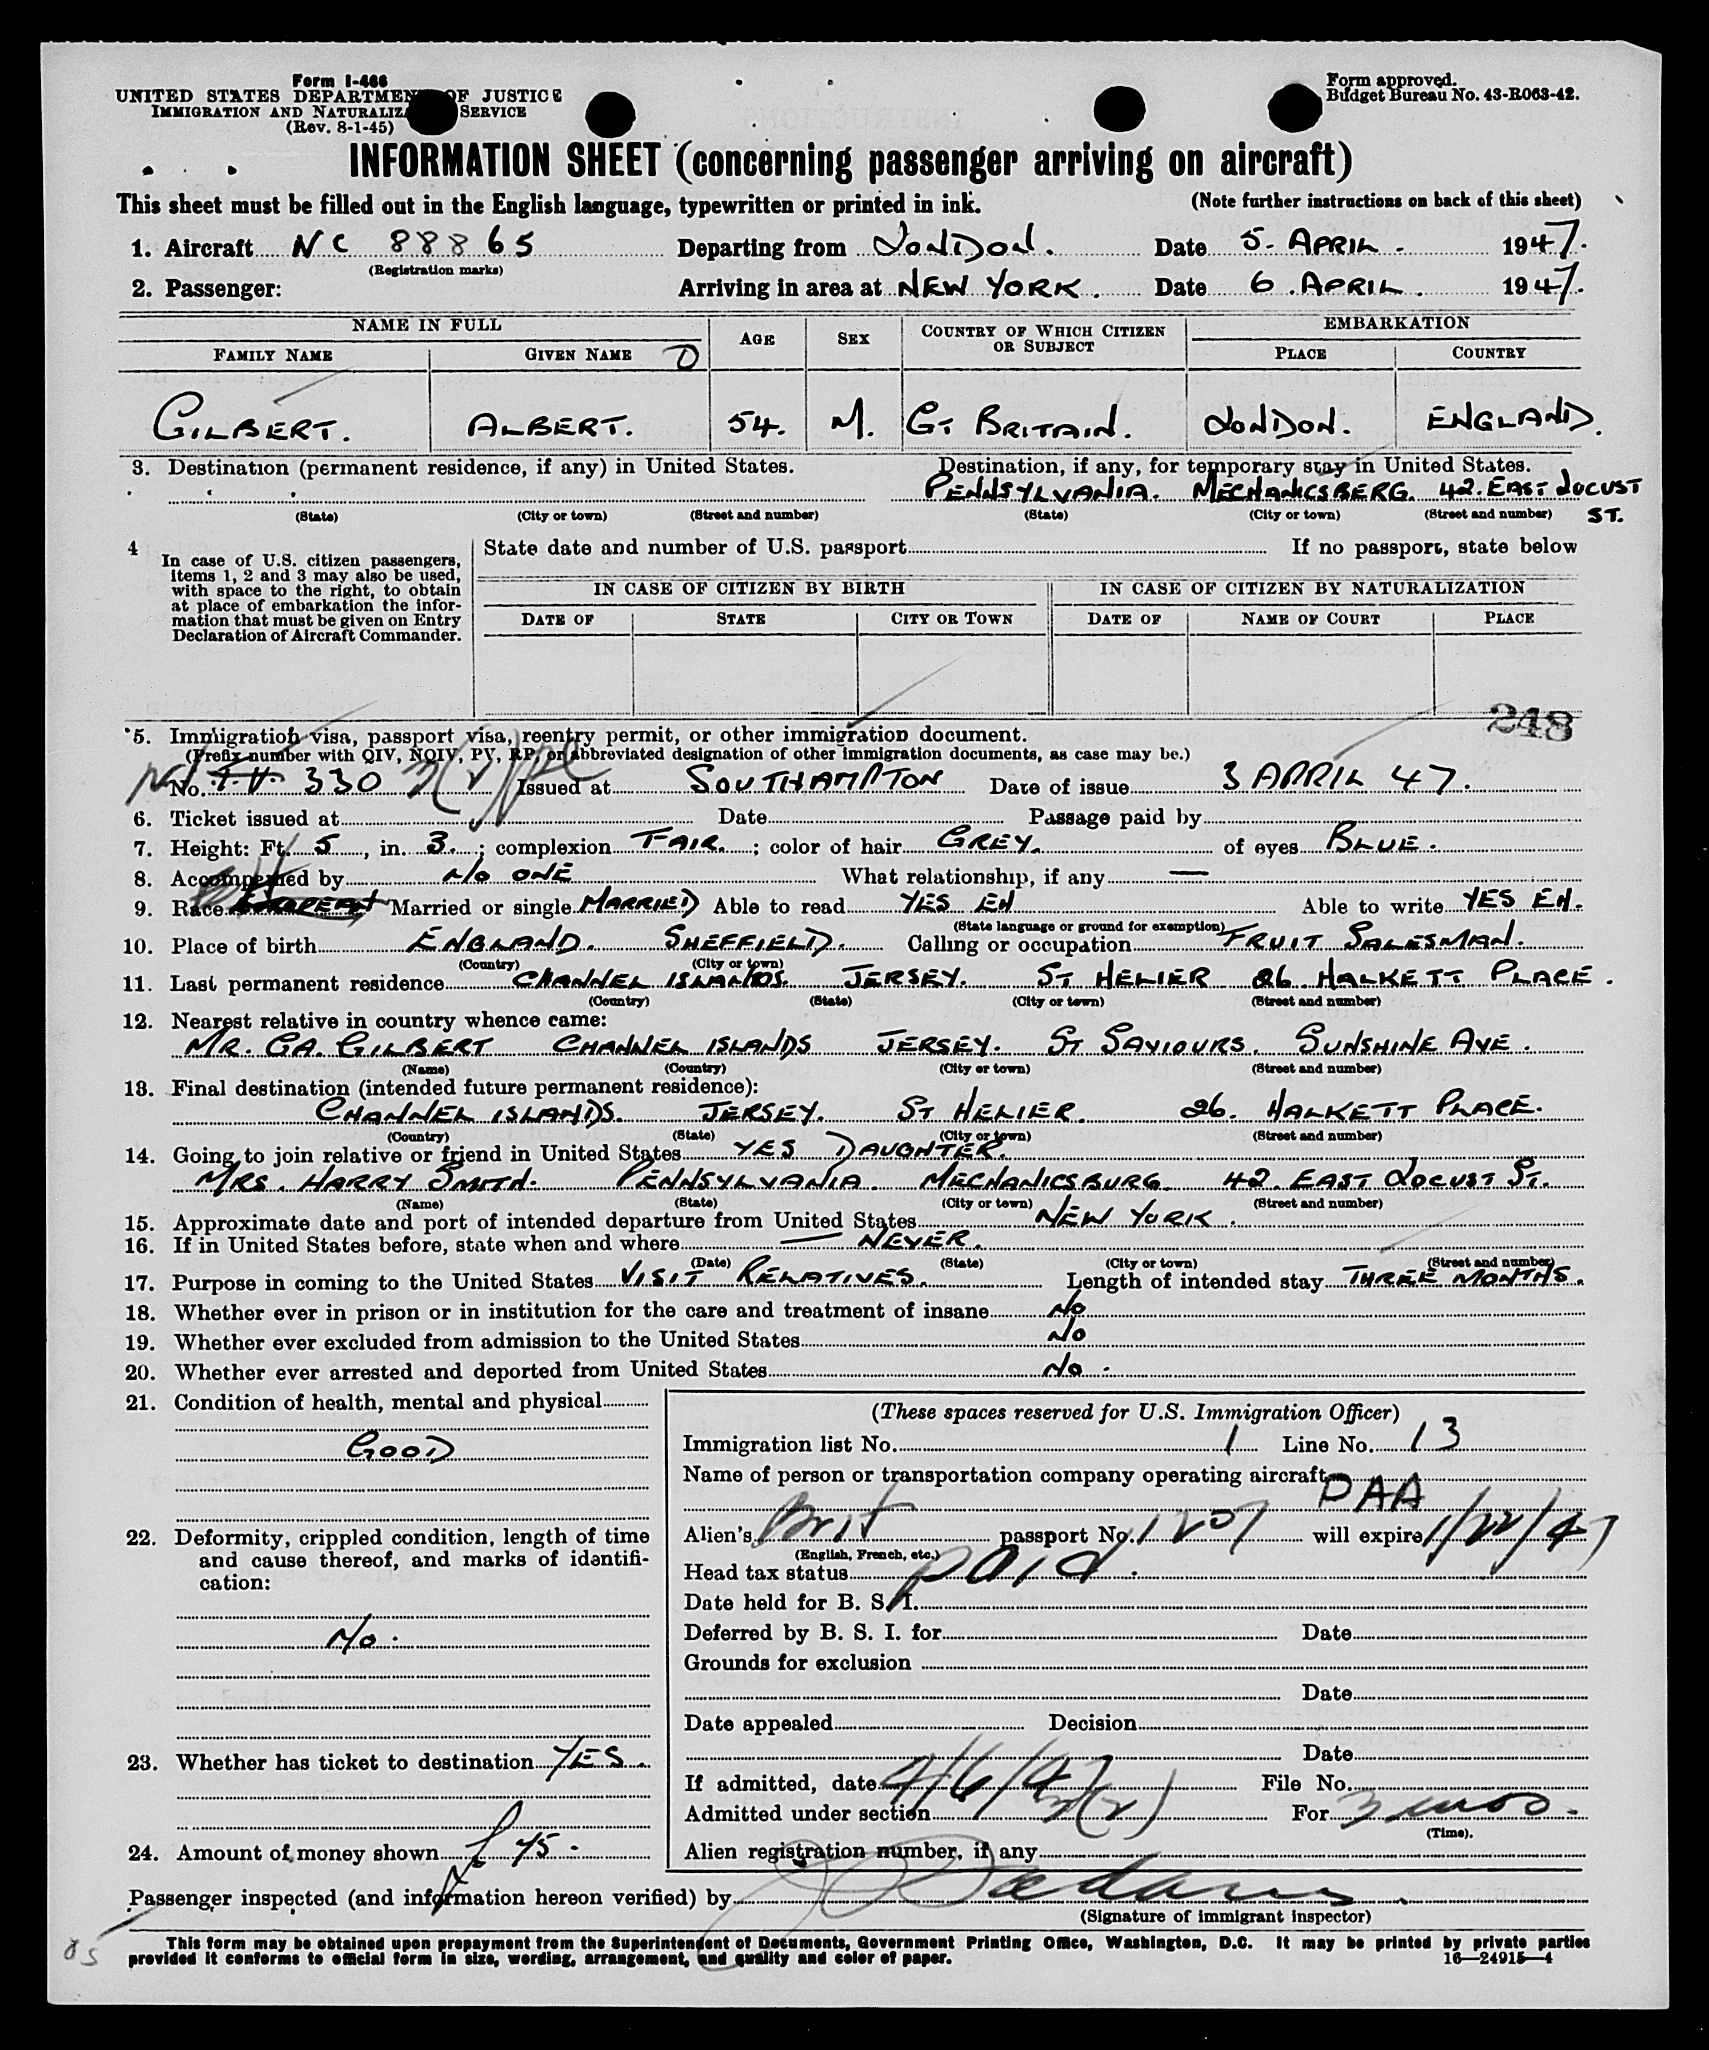 Form I-466
UNITED STATES DEPARTMENT OF JUSTICE
IMMIGRATION AND NATURALIZATION SERVICE
(Rev. 8-1-45)
Form approved.
Budget Bureau No. 43-R063-42.
INFORMATION SHEET (concerning passenger arriving on aircraft)
This sheet must be filled out in the English language, typewritten or printed in ink. (Note further instructions on back of this sheet)
1. Aircraft NC 88865 Departing from LONDON. Date 5. APRIL. 1947.
(Registration marks)
2. Passenger: Arriving in area at NEW YORK. Date 6. APRIL. 1947.
NAME IN FULL AGE SEX COUNTRY OF WHICH CITIZEN OR SUBJECT EMBARKATION
FAMILY NAME GIVEN NAME PLACE COUNTRY
GILBERT. ALBERT. 54. M. GT BRITAIN. LONDON. ENGLAND.
3. Destination (permanent residence, if any) in United States. Destination, if any, for temporary stay in United States.
PENNSYLVANIA. MECHANICSBERG. 42. EAST LOCUST ST.
(State) (City or town) (Street and number) (State) (City or town) (Street and number)
4 In case of U.S. citizen passengers, items 1, 2 and 3 may also be used, with space to the right, to obtain at place of embarkation the information that must be given on Entry Declaration of Aircraft Commander.
State date and number of U.S. passport If no passport, state below
IN CASE OF CITIZEN BY BIRTH IN CASE OF CITIZEN BY NATURALIZATION
DATE OF STATE CITY OR TOWN DATE OF NAME OF COURT PLACE
248
5. Immigration visa, passport visa, reentry permit, or other immigration document.
(Prefix number with QIV, NQIV, PV, RP, or abbreviated designation of other immigration documents, as case may be.)
No. 330 Issued at SOUTHAMPTON Date of issue 3 APRIL 47.
6. Ticket issued at Date Passage paid by
7. Height: Ft. 5, in. 3.; complexion FAIR.; color of hair GREY. of eyes BLUE.
8. Accompanied by NO ONE What relationship, if any —
9. Race Married or single MARRIED Able to read YES EN Able to write YES EN.
(State language or ground for exemption)
10. Place of birth ENGLAND. SHEFFIELD. Calling or occupation FRUIT SALESMAN.
(Country) (City or town)
11. Last permanent residence CHANNEL ISLANDS. JERSEY. ST HELIER 26 HALKETT PLACE.
(Country) (State) (City or town) (Street and number)
12. Nearest relative in country whence came:
MR. GA. GILBERT CHANNEL ISLANDS JERSEY. ST SAVIOURS. SUNSHINE AVE.
(Name) (Country) (City or town) (Street and number)
13. Final destination (intended future permanent residence):
CHANNEL ISLANDS. JERSEY. ST HELIER. 26. HALKETT PLACE.
(Country) (State) (City or town) (Street and number)
14. Going to join relative or friend in United States YES DAUGHTER.
MRS. HARRY SMITH. PENNSYLVANIA MECHANICSBURG. 42. EAST LOCUST ST.
(Name) (State) (City or town) (Street and number)
15. Approximate date and port of intended departure from United States NEW YORK.
16. If in United States before, state when and where — NEVER.
(Date) (State) (City or town) (Street and number)
17. Purpose in coming to the United States VISIT RELATIVES. Length of intended stay THREE MONTHS.
18. Whether ever in prison or in institution for the care and treatment of insane NO
19. Whether ever excluded from admission to the United States NO
20. Whether ever arrested and deported from United States NO.
21. Condition of health, mental and physical
GOOD
22. Deformity, crippled condition, length of time and cause thereof, and marks of identification:
NO.
23. Whether has ticket to destination YES.
24. Amount of money shown £ 75.
(These spaces reserved for U.S. Immigration Officer)
Immigration list No. 1 Line No. 13
Name of person or transportation company operating aircraft
PAA
Alien's Brit passport No. 1207 will expire 1/22/47
(English, French, etc.)
Head tax status paid.
Date held for B. S. I.
Deferred by B. S. I. for Date
Grounds for exclusion
Date
Date appealed Decision
Date
If admitted, date 4/6/47 File No.
Admitted under section 3(2) For 3 mos.
(Time).
Alien registration number, if any
Passenger inspected (and information hereon verified) by
(Signature of immigrant inspector)
This form may be obtained upon prepayment from the Superintendent of Documents, Government Printing Office, Washington, D.C. It may be printed by private parties
provided it conforms to official form in size, wording, arrangement, and quality and color of paper. 16—24915-4